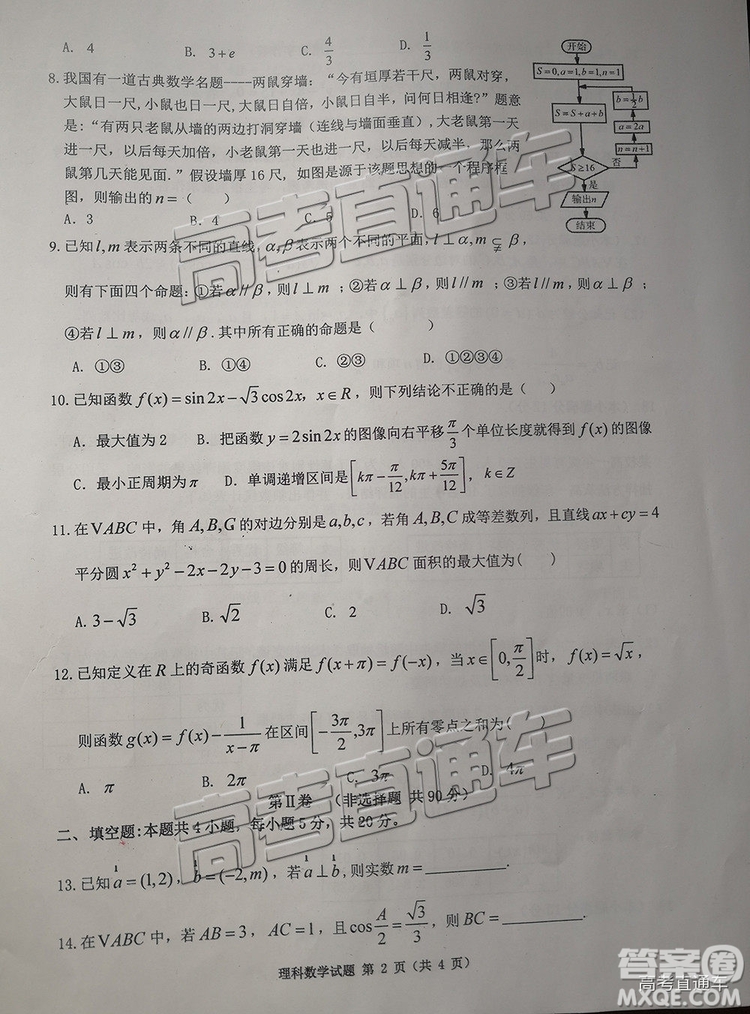 A. 4 B. 3+e C. 4/3 D. 1/3
8. 我国有一道古典数学名题----两鼠穿墙：“今有垣厚若干尺，两鼠对穿，
大鼠日一尺，小鼠也日一尺，大鼠日自倍，小鼠日自半，问何日相逢？”题意
是：“有两只老鼠从墙的两边打洞穿墙（连线与墙面垂直），大老鼠第一天
进一尺，以后每天加倍，小老鼠第一天进一尺，以后每天减半．那么两
鼠第几天能见面．”假设墙厚16尺，如图是源于该思想的一个程序框
图，则输出的n=（ ）
A. 3 B. 4 C. 5 D. 6
开始
S=0,a=1,b=1,n=1
S=S+a+b
S≥16
否
n=n+1
a=2a
b=1/2 b
是
输出n
结束
9. 已知l,m表示两条不同的直线，α,β表示两个不同的平面，l⊥α,m⊊β，
则有下面四个命题：①若α∥β，则l⊥m；②若α⊥β，则l∥m；③若l∥m，则α⊥β；
④若l⊥m，则α∥β．其中所有正确的命题是（ ）
A. ①③ B. ①④ C. ②③ D. ①②③④
10. 已知函数f(x)=sin2x-√3cos2x，x∈R，则下列结论不正确的是（ ）
A. 最大值为2 B. 把函数y=2sin2x的图像向右平移π/3个单位长度就得到f(x)的图像
C. 最小正周期为π D. 单调递增区间是[kπ-π/12,kπ+5π/12]，k∈Z
11. 在VABC中，角A,B,G的对边分别是a,b,c，若角A,B,C成等差数列，且直线ax+cy=4
平分圆x²+y²-2x-2y-3=0的周长，则VABC面积的最大值为（ ）
A. 3-√3 B. √2 C. 2 D. √3
12. 已知定义在R上的奇函数f(x)满足f(x+π)=f(-x)，当x∈[0,π/2]时，f(x)=√x，
则函数g(x)=f(x)-1/(x-π)在区间[-3π/2,3π]上所有零点之和为（ ）
A. π B. 2π C. 3π D. 4π
第Ⅱ卷 （非选择题 共90分）
二、填空题：本题共4小题，每小题5分，共20分．
13. 已知a=(1,2)，b=(-2,m)，若a⊥b，则实数m=________.
14. 在VABC中，若AB=3，AC=1，且cos A/2=√3/3，则BC=________.
理科数学试题 第2页（共4页）
高考直通车
高考直通车
答案圈
高考直通车
MXQE.COM